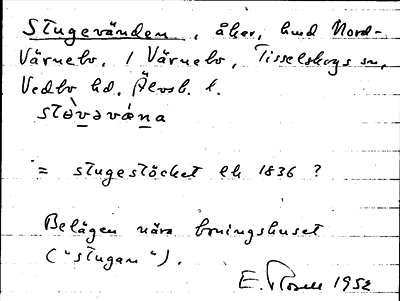 Stugevänden, åker, hmd Nord-
Värnebo, / Värnebo, Tisselskogs sn,
Vedbo hd, Älvsb. l.
stòvəvǽna
= stugestöcket elh 1836 ?
Belägen nära boningshuset
("stugan").
E. Rosell 1952